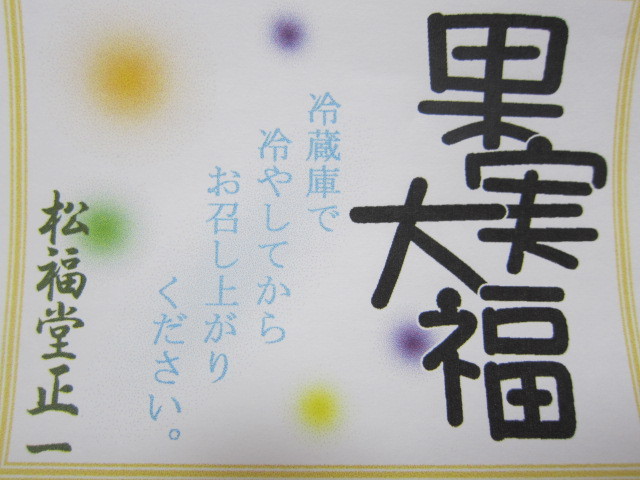 果実大福
冷蔵庫で
冷やしてから
お召し上がり
ください。
松福堂正一